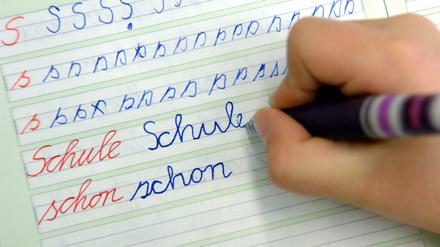 S S S S S
s s s s s s s s s s s s s s s
s s s s s s s s s s s s
Schule Schule
schon schon